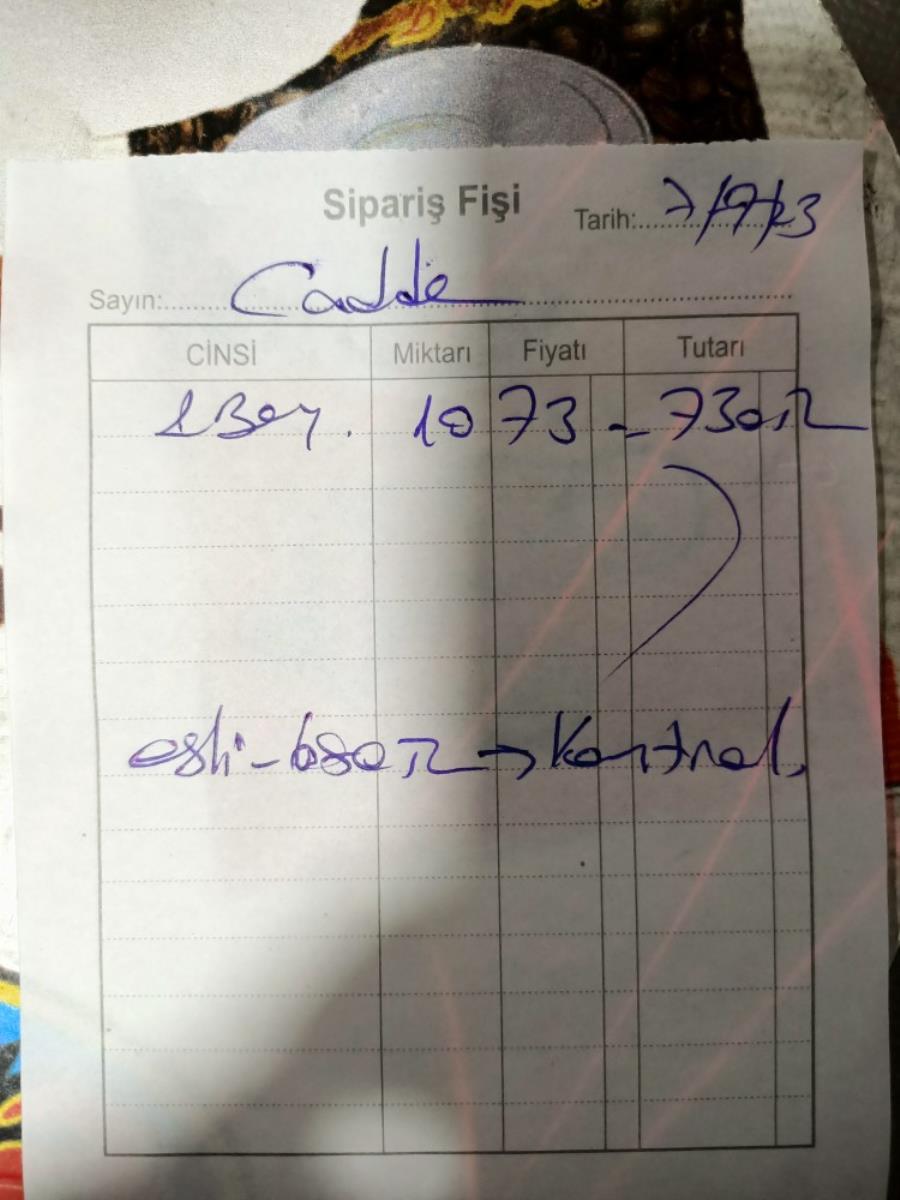 Sipariş Fişi
Tarih: 7/9/23
Sayın: Cadde
CİNSİ Miktarı Fiyatı Tutarı
10 73 - 730 TL
eski - 680 TL → Kontrol.